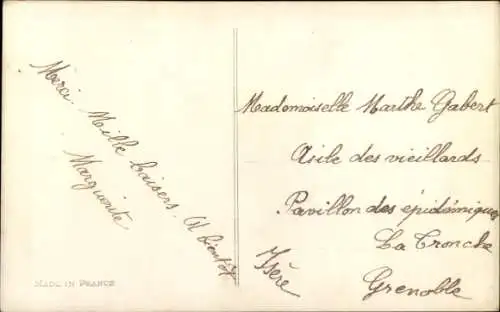 Merci. Mille baisers. A bientôt
Marguerite
MADE IN FRANCE
Mademoiselle Marthe Gabert
Asile des vieillards
Pavillon des épidémiques
La Tronche
Isère
Grenoble